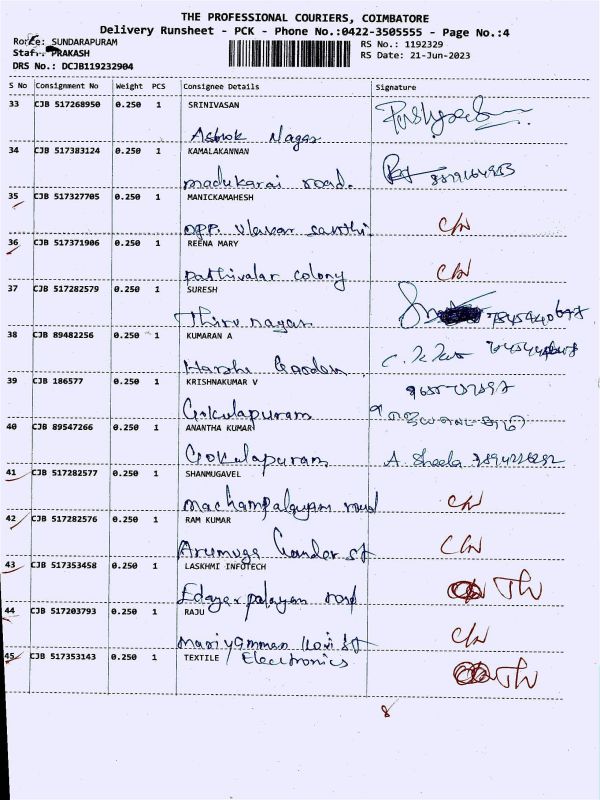 THE PROFESSIONAL COURIERS, COIMBATORE
Delivery Runsheet - PCK - Phone No.:0422-3505555 - Page No.:4
Route: SUNDARAPURAM
RS No.: 1192329
Staff: PRAKASH
RS Date: 21-Jun-2023
DRS No.: DCJB119232904
S No Consignment No Weight PCS Consignee Details Signature
33 CJB 517268950 0.250 1 SRINIVASAN
Ashok Nagar
34 CJB 517383124 0.250 1 KAMALAKANNAN
madukarai road.
35 CJB 517327705 0.250 1 MANICKAMAHESH
opp. C/N
36 CJB 517371906 0.250 1 REENA MARY
Pathivalar colony C/N
37 CJB 517282579 0.250 1 SURESH
Thiru nagar
38 CJB 89482256 0.250 1 KUMARAN A
Harshi Garden
39 CJB 186577 0.250 1 KRISHNAKUMAR V
Gokulapuram
40 CJB 89547266 0.250 1 ANANTHA KUMAR
Gokulapuram A. Sheela
41 CJB 517282577 0.250 1 SHANMUGAVEL
machampalayam road C/N
42 CJB 517282576 0.250 1 RAM KUMAR
Arumuga Gounder st C/N
43 CJB 517353458 0.250 1 LASKHMI INFOTECH
Edayarpalayam road
44 CJB 517203793 0.250 1 RAJU
mariyamman kovi st C/N
45 CJB 517353143 0.250 1 TEXTILE / Electronics
8